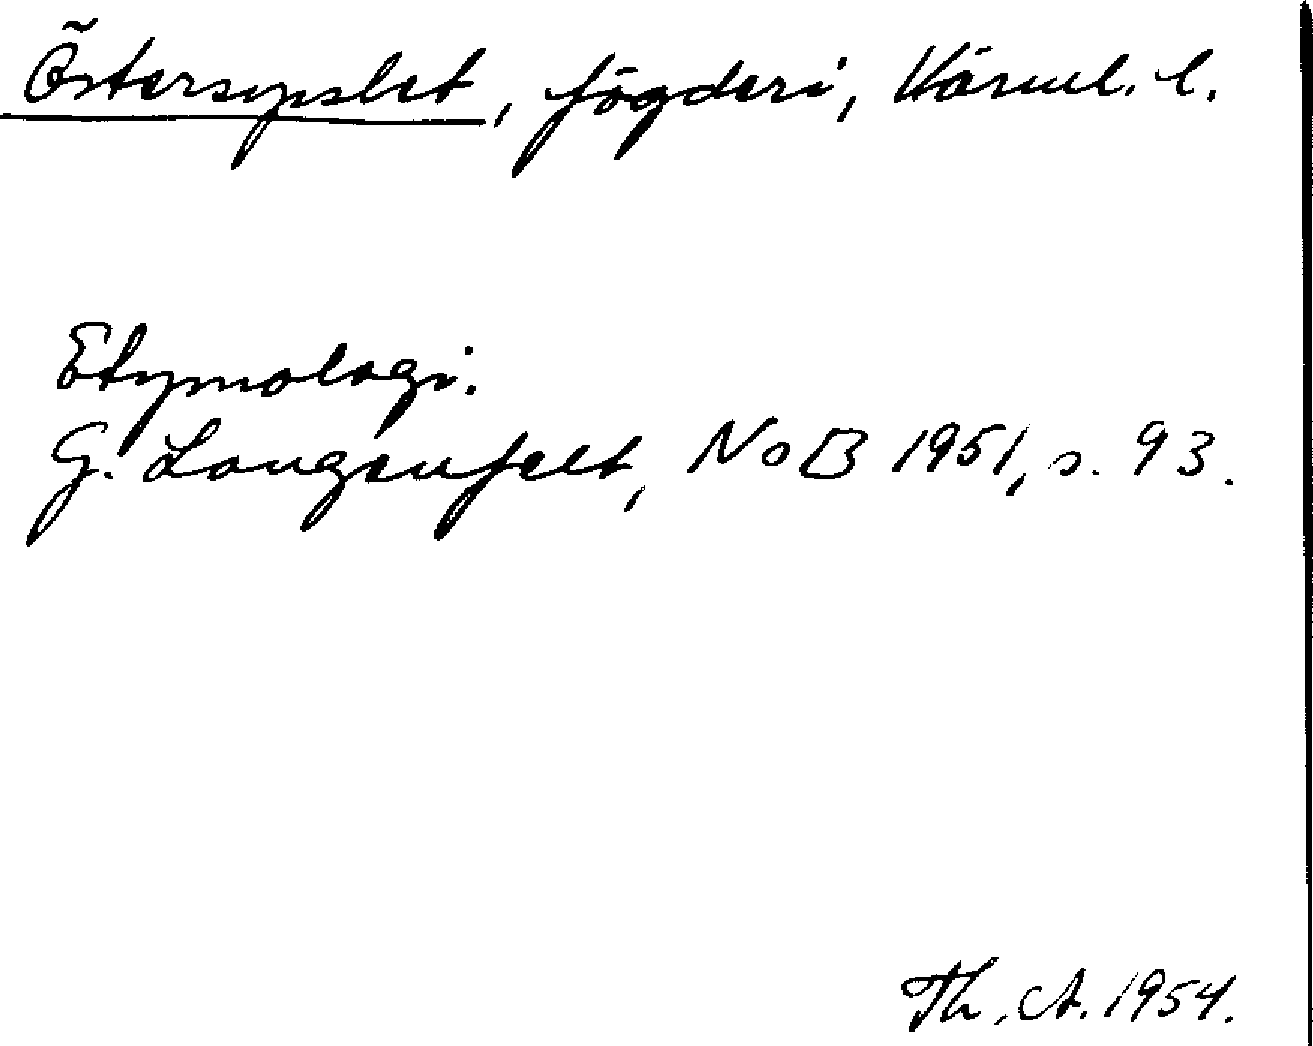 Östersysslet, fögderi, Värml. l.
Etymologi.
G. Langenfelt, NoB 1951, s. 93.
Th. A. 1954.